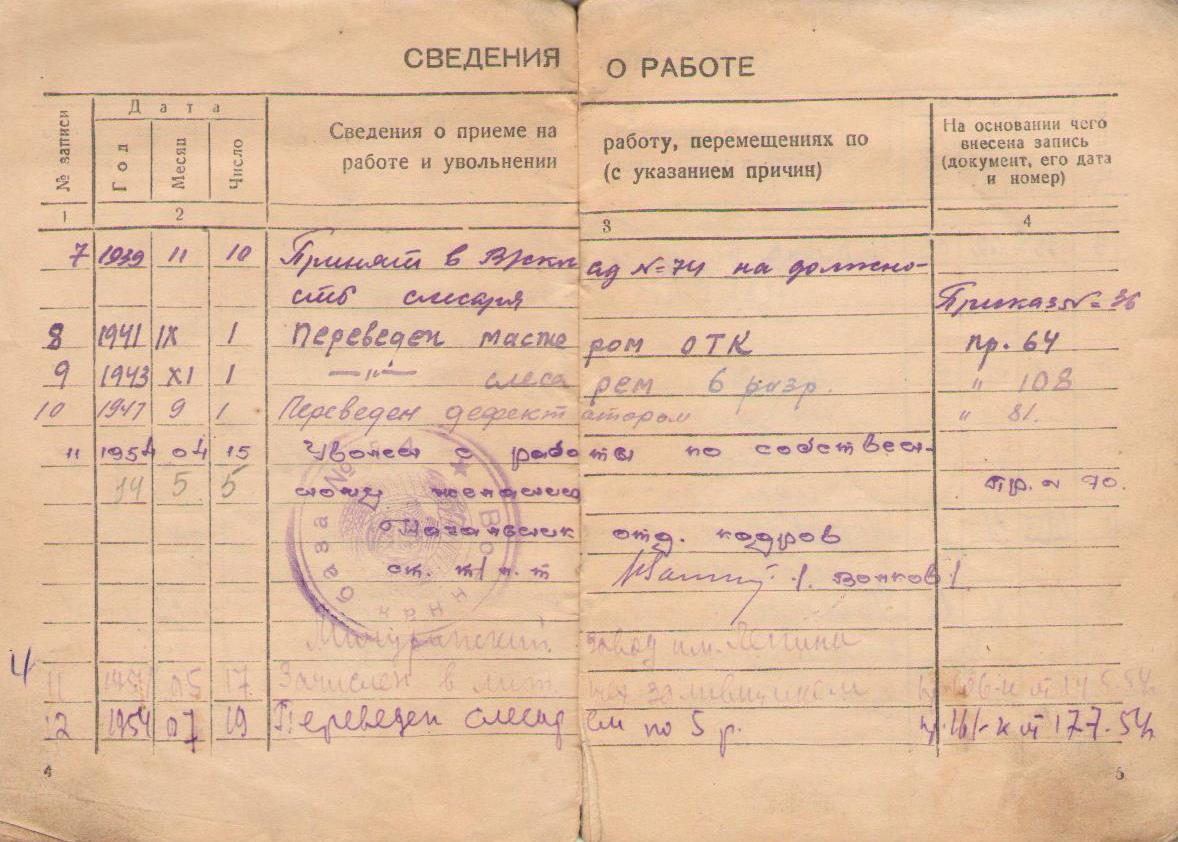 СВЕДЕНИЯ О РАБОТЕ
№ записи
Дата
Год
Месяц
Число
Сведения о приеме на работу, перемещениях по
работе и увольнении (с указанием причин)
На основании чего
внесена запись
(документ, его дата
и номер)
1 2 3 4
7 1939 11 10 Принят в В/склад №74 на должно-
сть слесаря Приказ № 36
8 1941 IX 1 Переведен мастером ОТК пр. 64
9 1943 XI 1 —"— слесарем 6 разр. " 108
10 1947 9 1 Переведен дефектатором " 81.
11 1954 04 15 Уволен с работы по собствен-
14 5 5 ному желанию пр. № 70.
Начальник отд. кадров
ст. т/л-т /Волков/
База № Военная
Мичуринский завод им. Ленина
4
11 1954 05 17 Зачислен в лит. цех заливщиком
12 1954 07 19 Переведен слесарем по 5 р. пр. 161-к от 17.7.54г
4 5